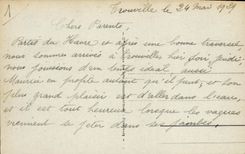 1
Trouville le 24 Mai 1929
Chers Parents,
Partis du Havre et après une bonne traversée
nous sommes arrivés à Trouville hier soir, jeudi,
nous jouissons d'un temps idéal aussi
Maurice en profite autant qu'il peut, et son
plus grand plaisir est d'aller dans l'eau,
et il est tout heureux lorsque les vagues
viennent se jeter dans ses jambes.